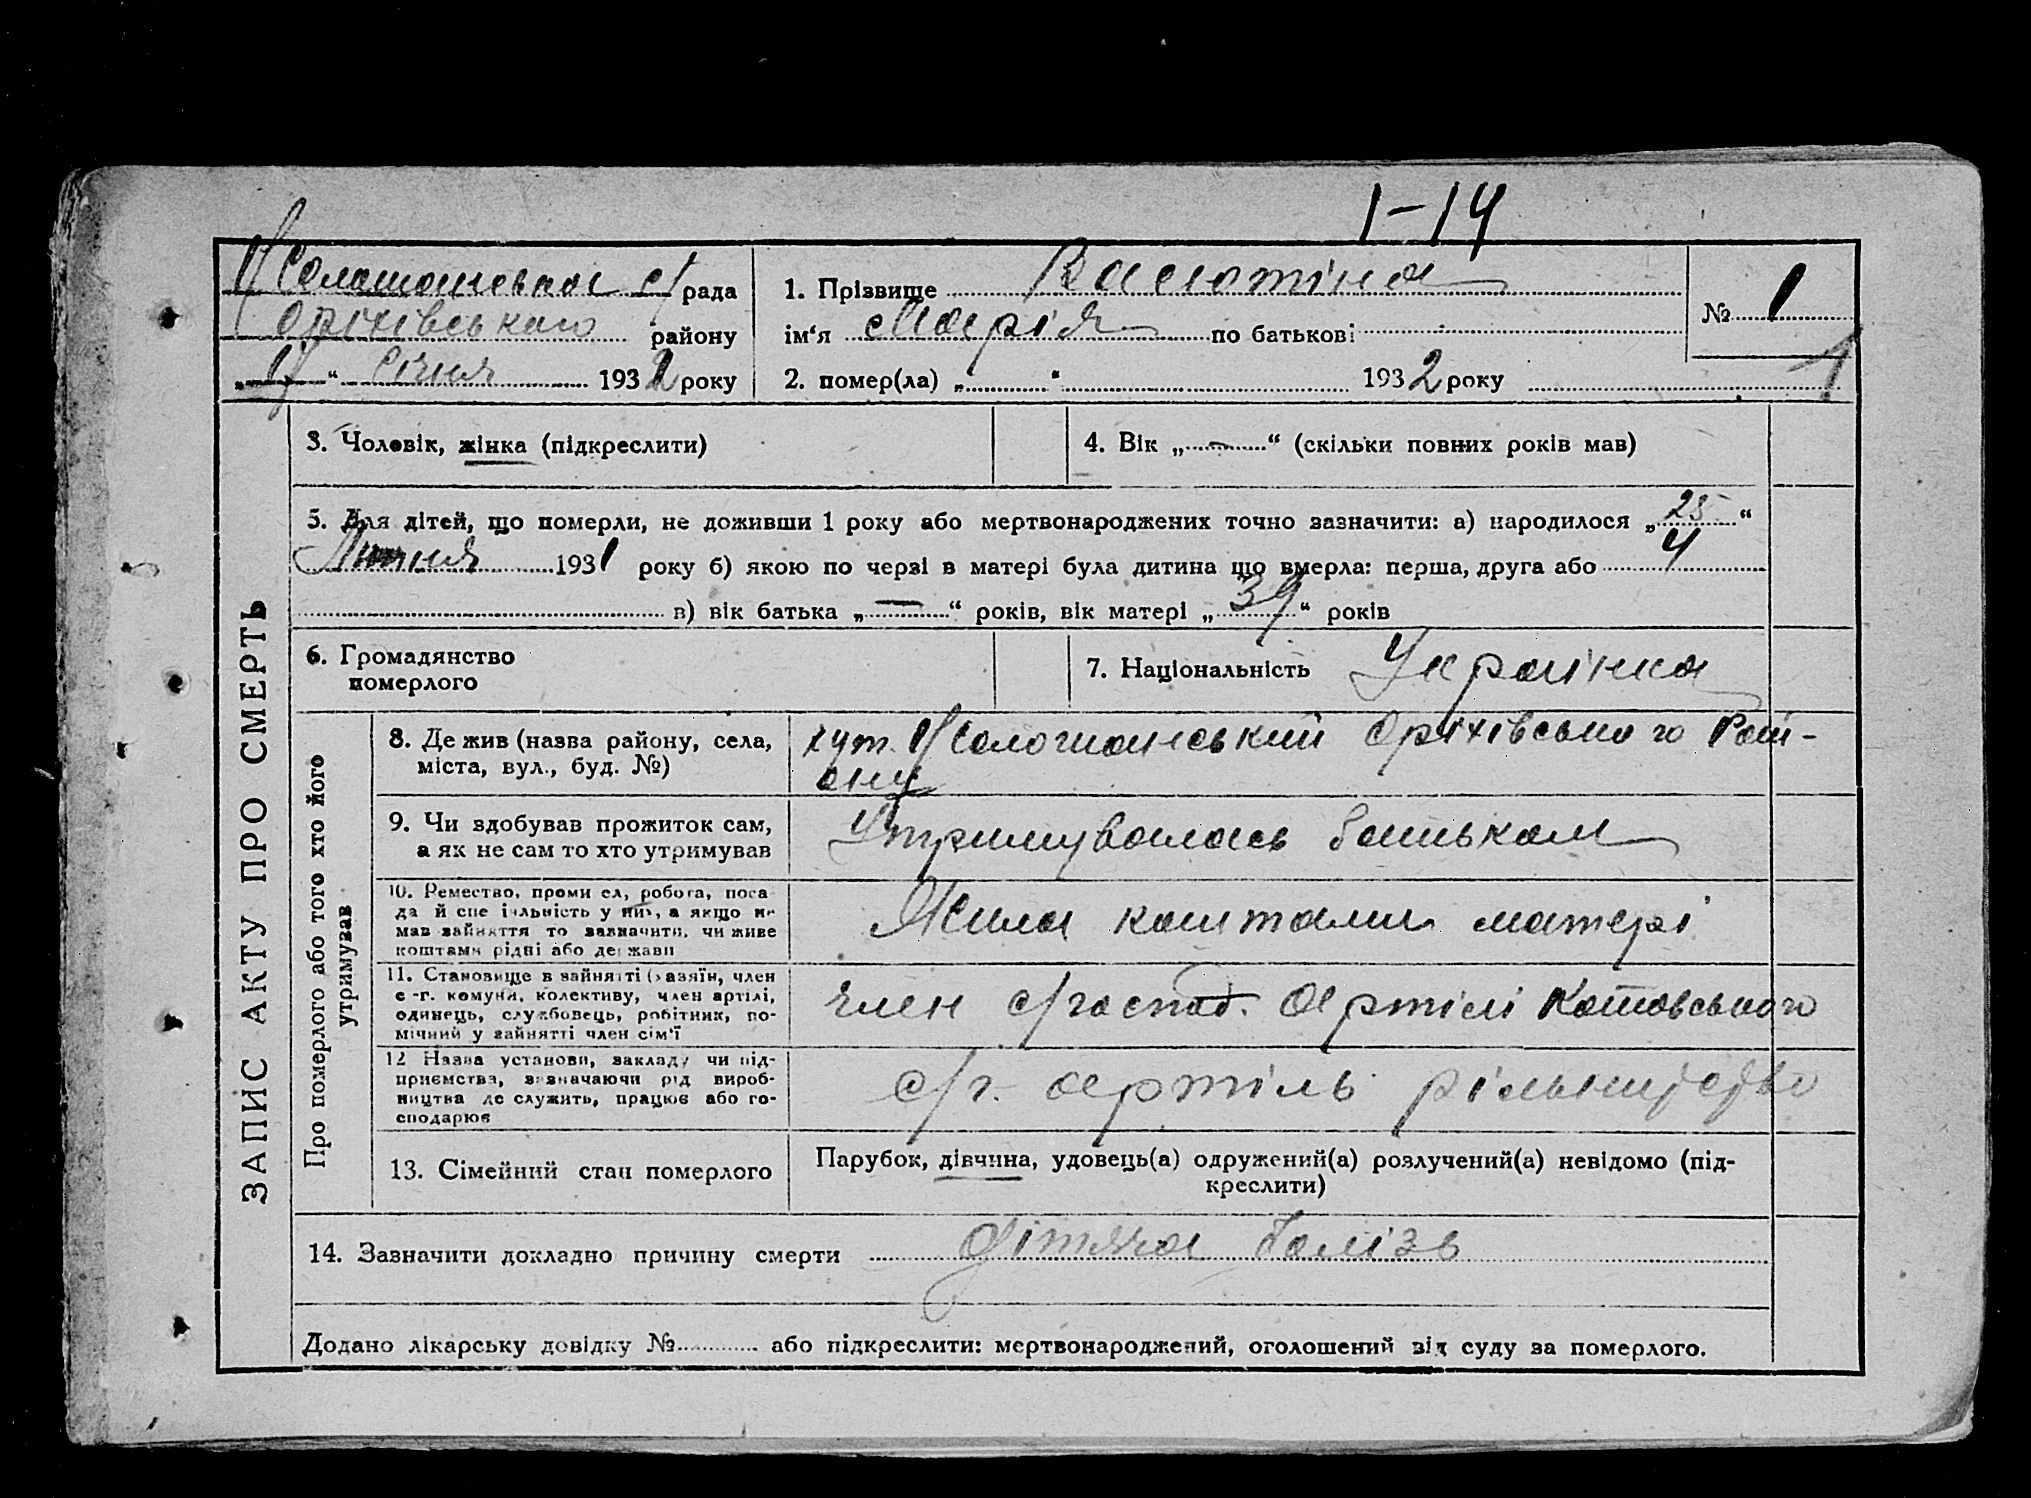 1-14
с/рада
Оріхівського району
„17“ січня 1932 року
1. Прізвище Васютіна
ім‘я Марія по батькові
2. помер(ла) „ “ 1932 року
№ 1
1
3. Чоловік, жінка (підкреслити)
4. Вік „-“ (скільки повних років мав)
5. Для дітей, що померли, не доживши 1 року або мертвонароджених точно зазначити: а) народилося „25“
1931 року б) якою по черзі в матері була дитина що вмерла: перша, друга або 4
в) вік батька „—“ років, вік матері „39“ років
6. Громадянство
померлого
7. Національність Українка
ЗАПИС АКТУ ПРО СМЕРТЬ
Про померлого або того хто його
утримував
8. Де жив (назва району, села,
міста, вул., буд. №)
хут. Оріхівського Рай-
ону
9. Чи здобував прожиток сам,
а як не сам то хто утримував
Утримувалась батьком
10. Ремество, промисел, робота, поса
да й спеціяльність у них, а якщо не
мав зайняття то зазначити, чи живе
коштами рідні або держави
Жила коштами матері
11. Становище в зайнятті (хазяїн, член
с.-г. комуни, колективу, член артілі,
одинець, службовець, робітник, по-
мічний у зайнятті член сім‘ї
член с/господ. Артілі Котовського
12 Назва установи, закладу чи під-
приємства, зазначаючи рід вироб-
ництва де служить, працює або го-
сподарює
с/г. артіль рільництво
13. Сімейний стан померлого
Парубок, дівчина, удовець(а) одружений(а) розлучений(а) невідомо (під-
креслити)
14. Зазначити докладно причину смерти дітяча болізь
Додано лікарську довідку № або підкреслити: мертвонароджений, оголошений від суду за померлого.